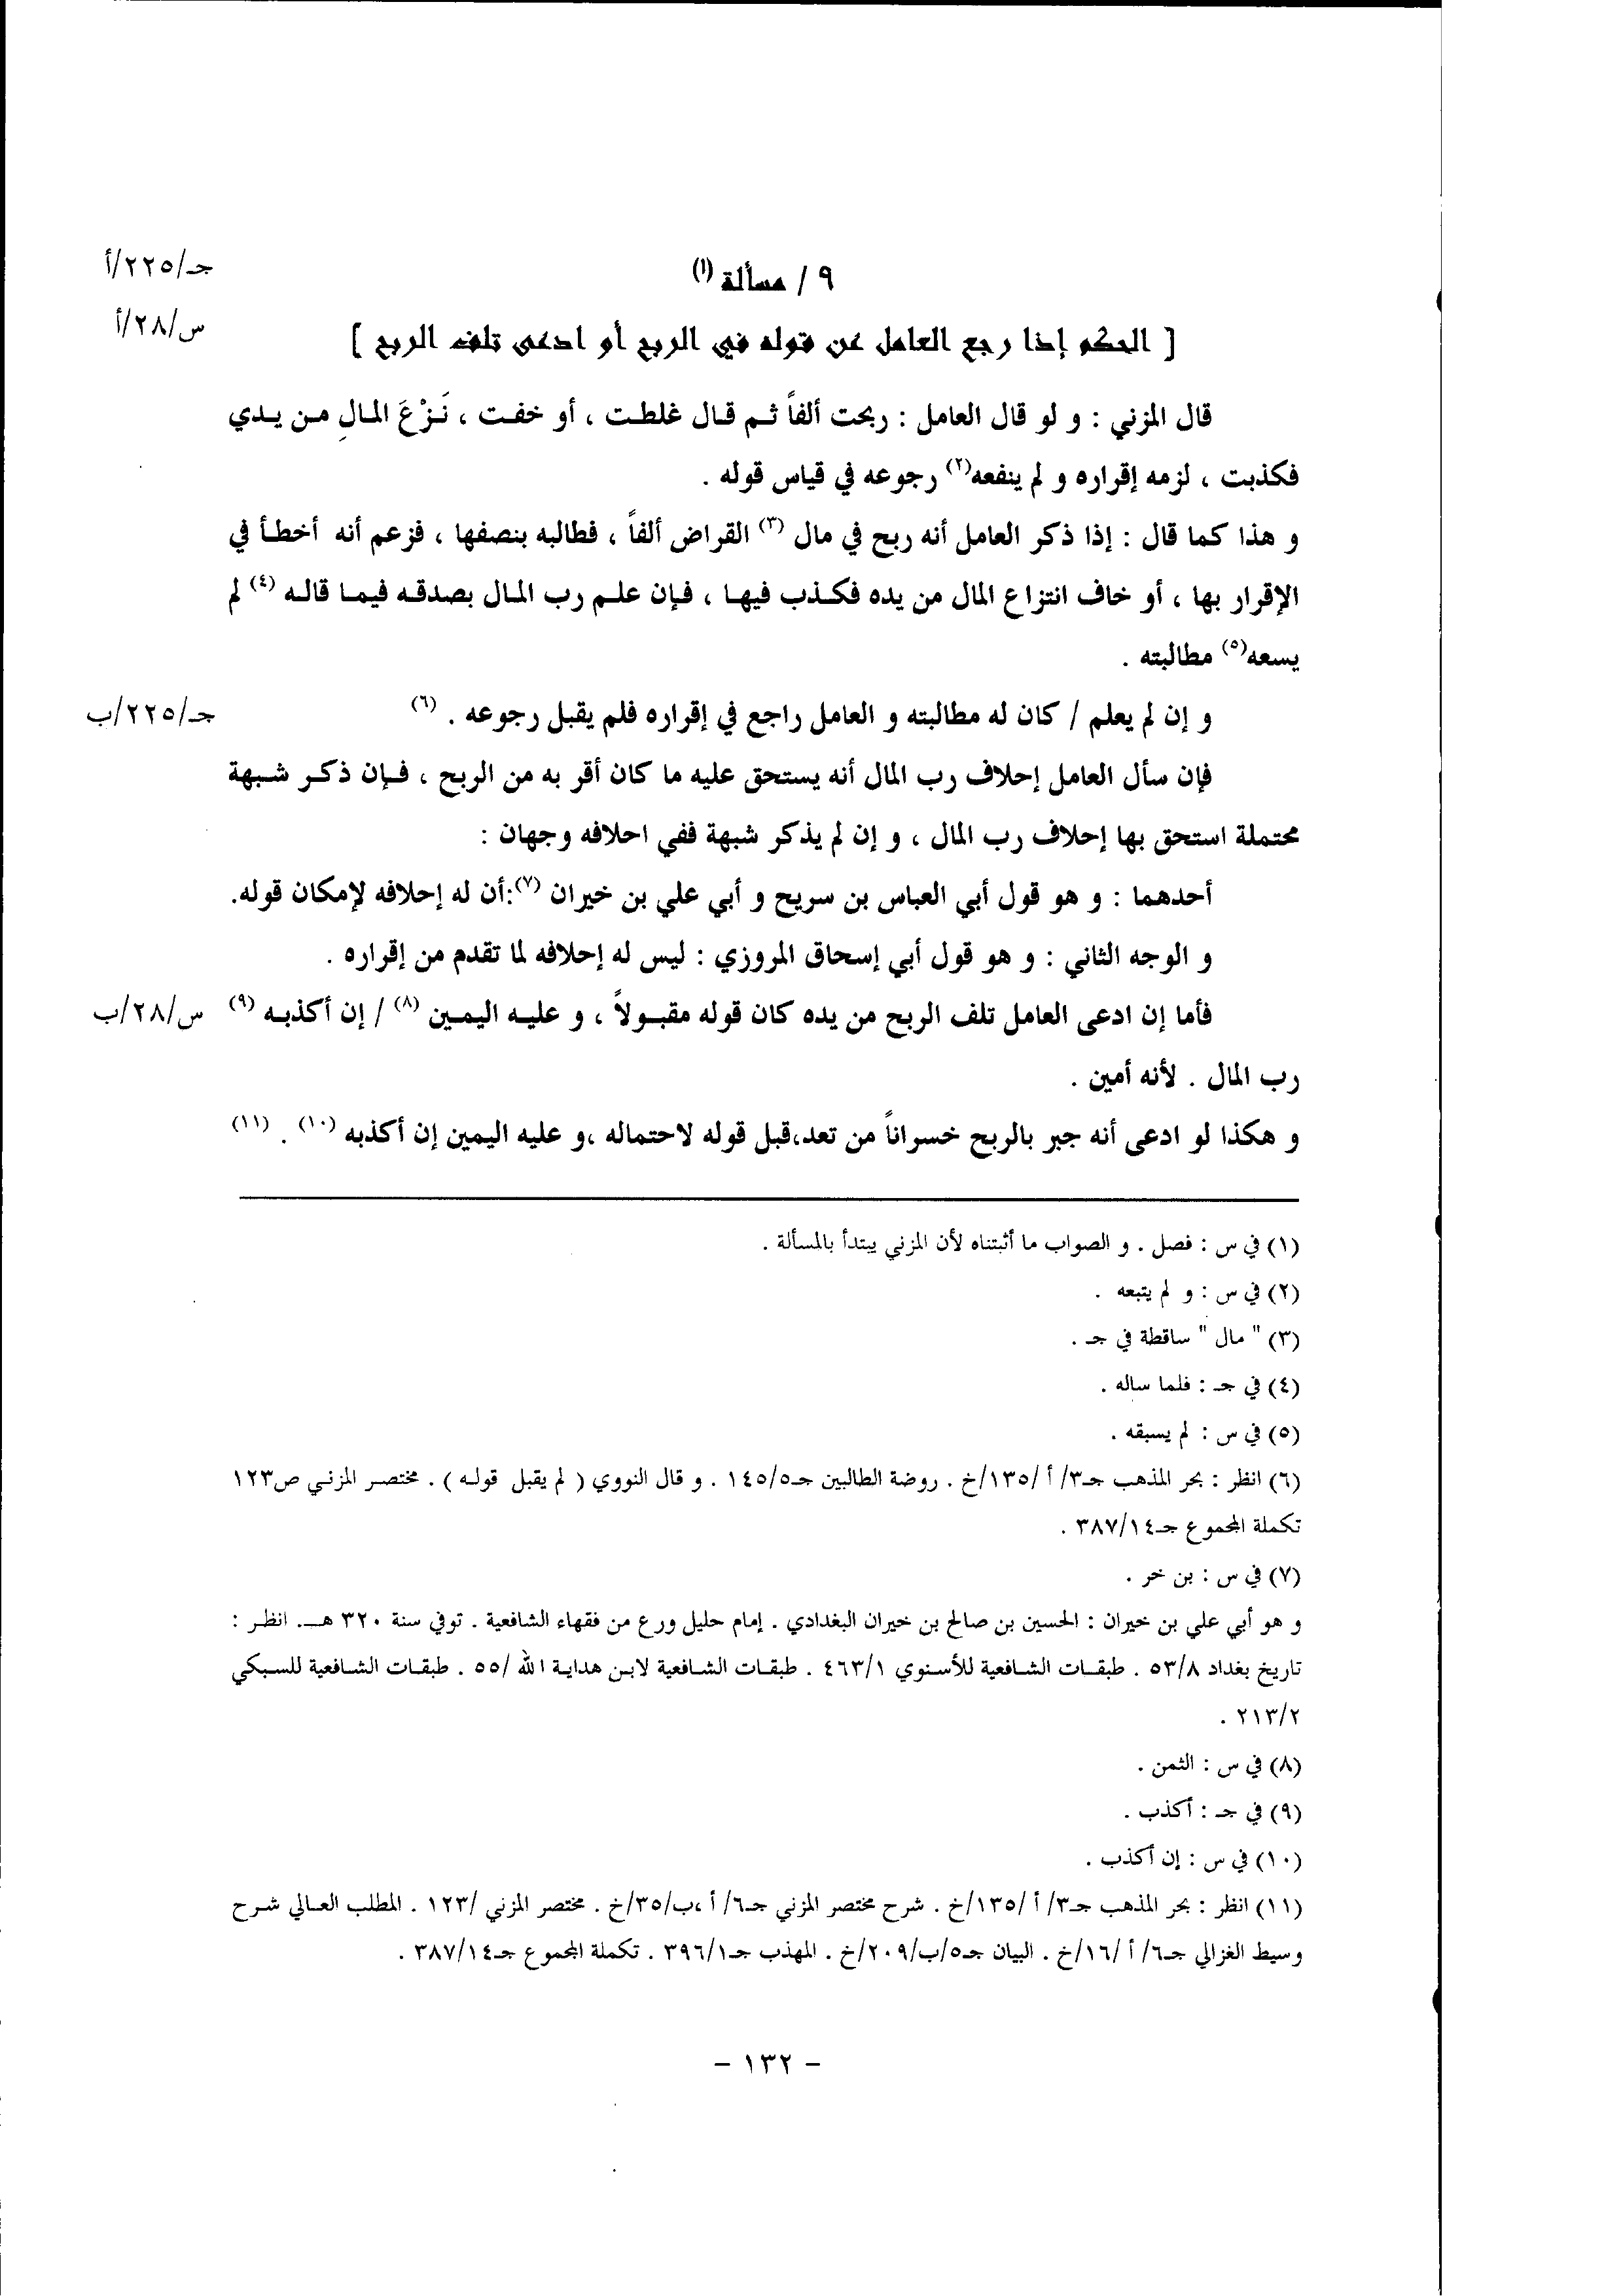 جـ/٢٢٥/أ
٩ / مسألة (١)
س/٢٨/أ
[ الحكم إذا رجع العامل عن قوله في الربح أو ادعى تلف الربح ]
قال المزني : و لو قال العامل : ربحت ألفاً ثم قال غلطت ، أو خفت ، نَزْعَ المالِ من يدي
فكذبت ، لزمه إقراره و لم ينفعه(٢) رجوعه في قياس قوله .
و هذا كما قال : إذا ذكر العامل أنه ربح في مال (٣) القراض ألفاً ، فطالبه بنصفها ، فزعم أنه أخطأ في
الإقرار بها ، أو خاف انتزاع المال من يده فكذب فيها ، فإن علم رب المال بصدقه فيما قاله (٤) لم
يسعه(٥) مطالبته .
و إن لم يعلم / كان له مطالبته و العامل راجع في إقراره فلم يقبل رجوعه . (٦)
جـ/٢٢٥/ب
فإن سأل العامل إحلاف رب المال أنه يستحق عليه ما كان أقر به من الربح ، فإن ذكر شبهة
محتملة استحق بها إحلاف رب المال ، و إن لم يذكر شبهة ففي احلافه وجهان :
أحدهما : و هو قول أبي العباس بن سريج و أبي علي بن خيران (٧):أن له إحلافه لإمكان قوله.
و الوجه الثاني : و هو قول أبي إسحاق المروزي : ليس له إحلافه لما تقدم من إقراره .
فأما إن ادعى العامل تلف الربح من يده كان قوله مقبولاً ، و عليه اليمين (٨) / إن أكذبه (٩)
س/٢٨/ب
رب المال . لأنه أمين .
و هكذا لو ادعى أنه جبر بالربح خسراناً من تعد،قبل قوله لاحتماله ،و عليه اليمين إن أكذبه (١٠) . (١١)
(١) في س : فصل . و الصواب ما أثبتناه لأن المزني يبتدأ بالمسألة .
(٢) في س : و لم يتبعه .
(٣) " مال " ساقطة في جـ .
(٤) في جـ : فلما ساله .
(٥) في س : لم يسبقه .
(٦) انظر : بحر المذهب جـ٣/ أ /١٣٥/خ . روضة الطالبين جـ١٤٥/٥ . و قال النووي ( لم يقبل قوله ) . مختصر المزني ص١٢٣
تكملة المجموع جـ٣٨٧/١٤ .
(٧) في س : بن خر .
و هو أبي علي بن خيران : الحسين بن صالح بن خيران البغدادي . إمام حليل ورع من فقهاء الشافعية . توفي سنة ٣٢٠ هـ. انظر :
تاريخ بغداد ٥٣/٨ . طبقات الشافعية للأسنوي ٤٦٣/١ . طبقات الشافعية لابن هداية الله /٥٥ . طبقات الشافعية للسبكي
٢١٣/٢ .
(٨) في س : الثمن .
(٩) في جـ : أكذب .
(١٠) في س : إن أكذب .
(١١) انظر : بحر المذهب جـ٣/ أ /١٣٥/خ . شرح مختصر المزني جـ٦/ أ ،ب/٣٥/خ . مختصر المزني /١٢٣ . المطلب العالي شرح
وسيط الغزالي جـ٦/ أ /١٦/خ . البيان جـ٥/ب/٢٠٩/خ . المهذب جـ٣٩٦/١ . تكملة المجموع جـ٣٨٧/١٤ .
- ١٣٢ -